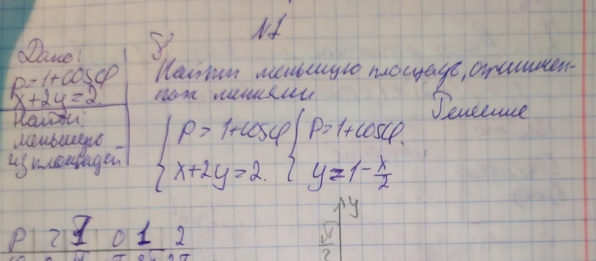 N1
Дано:
ρ=1+cosφ
x+2y=2.
Найти
меньшую
из площадей
Найти меньшую площадь, ограничен-
ных линиями
Решение
{ρ=1+cosφ {ρ=1+cosφ.
{x+2y=2. {y=1-x/2
y
ρ | 2 | 1 | 0 | 1 | 2